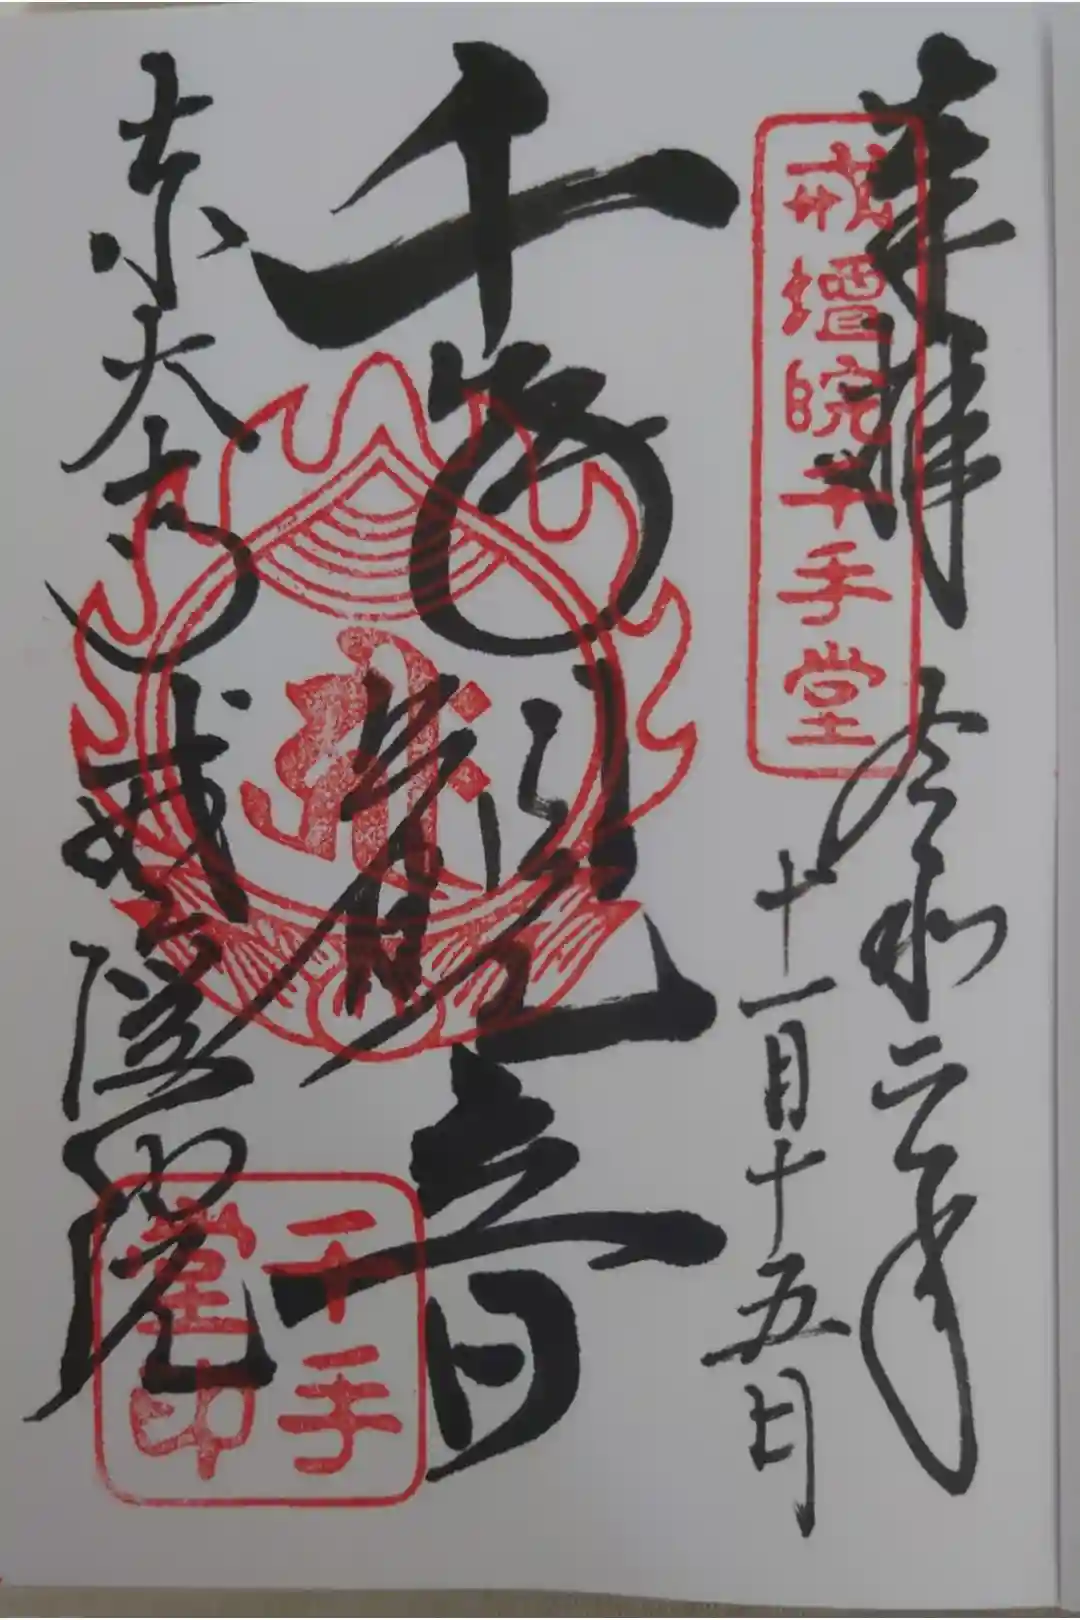 奉拝
令和二年
十一月十五日
戒壇院千手堂
千手観音
東大寺戒壇院
千手
堂印